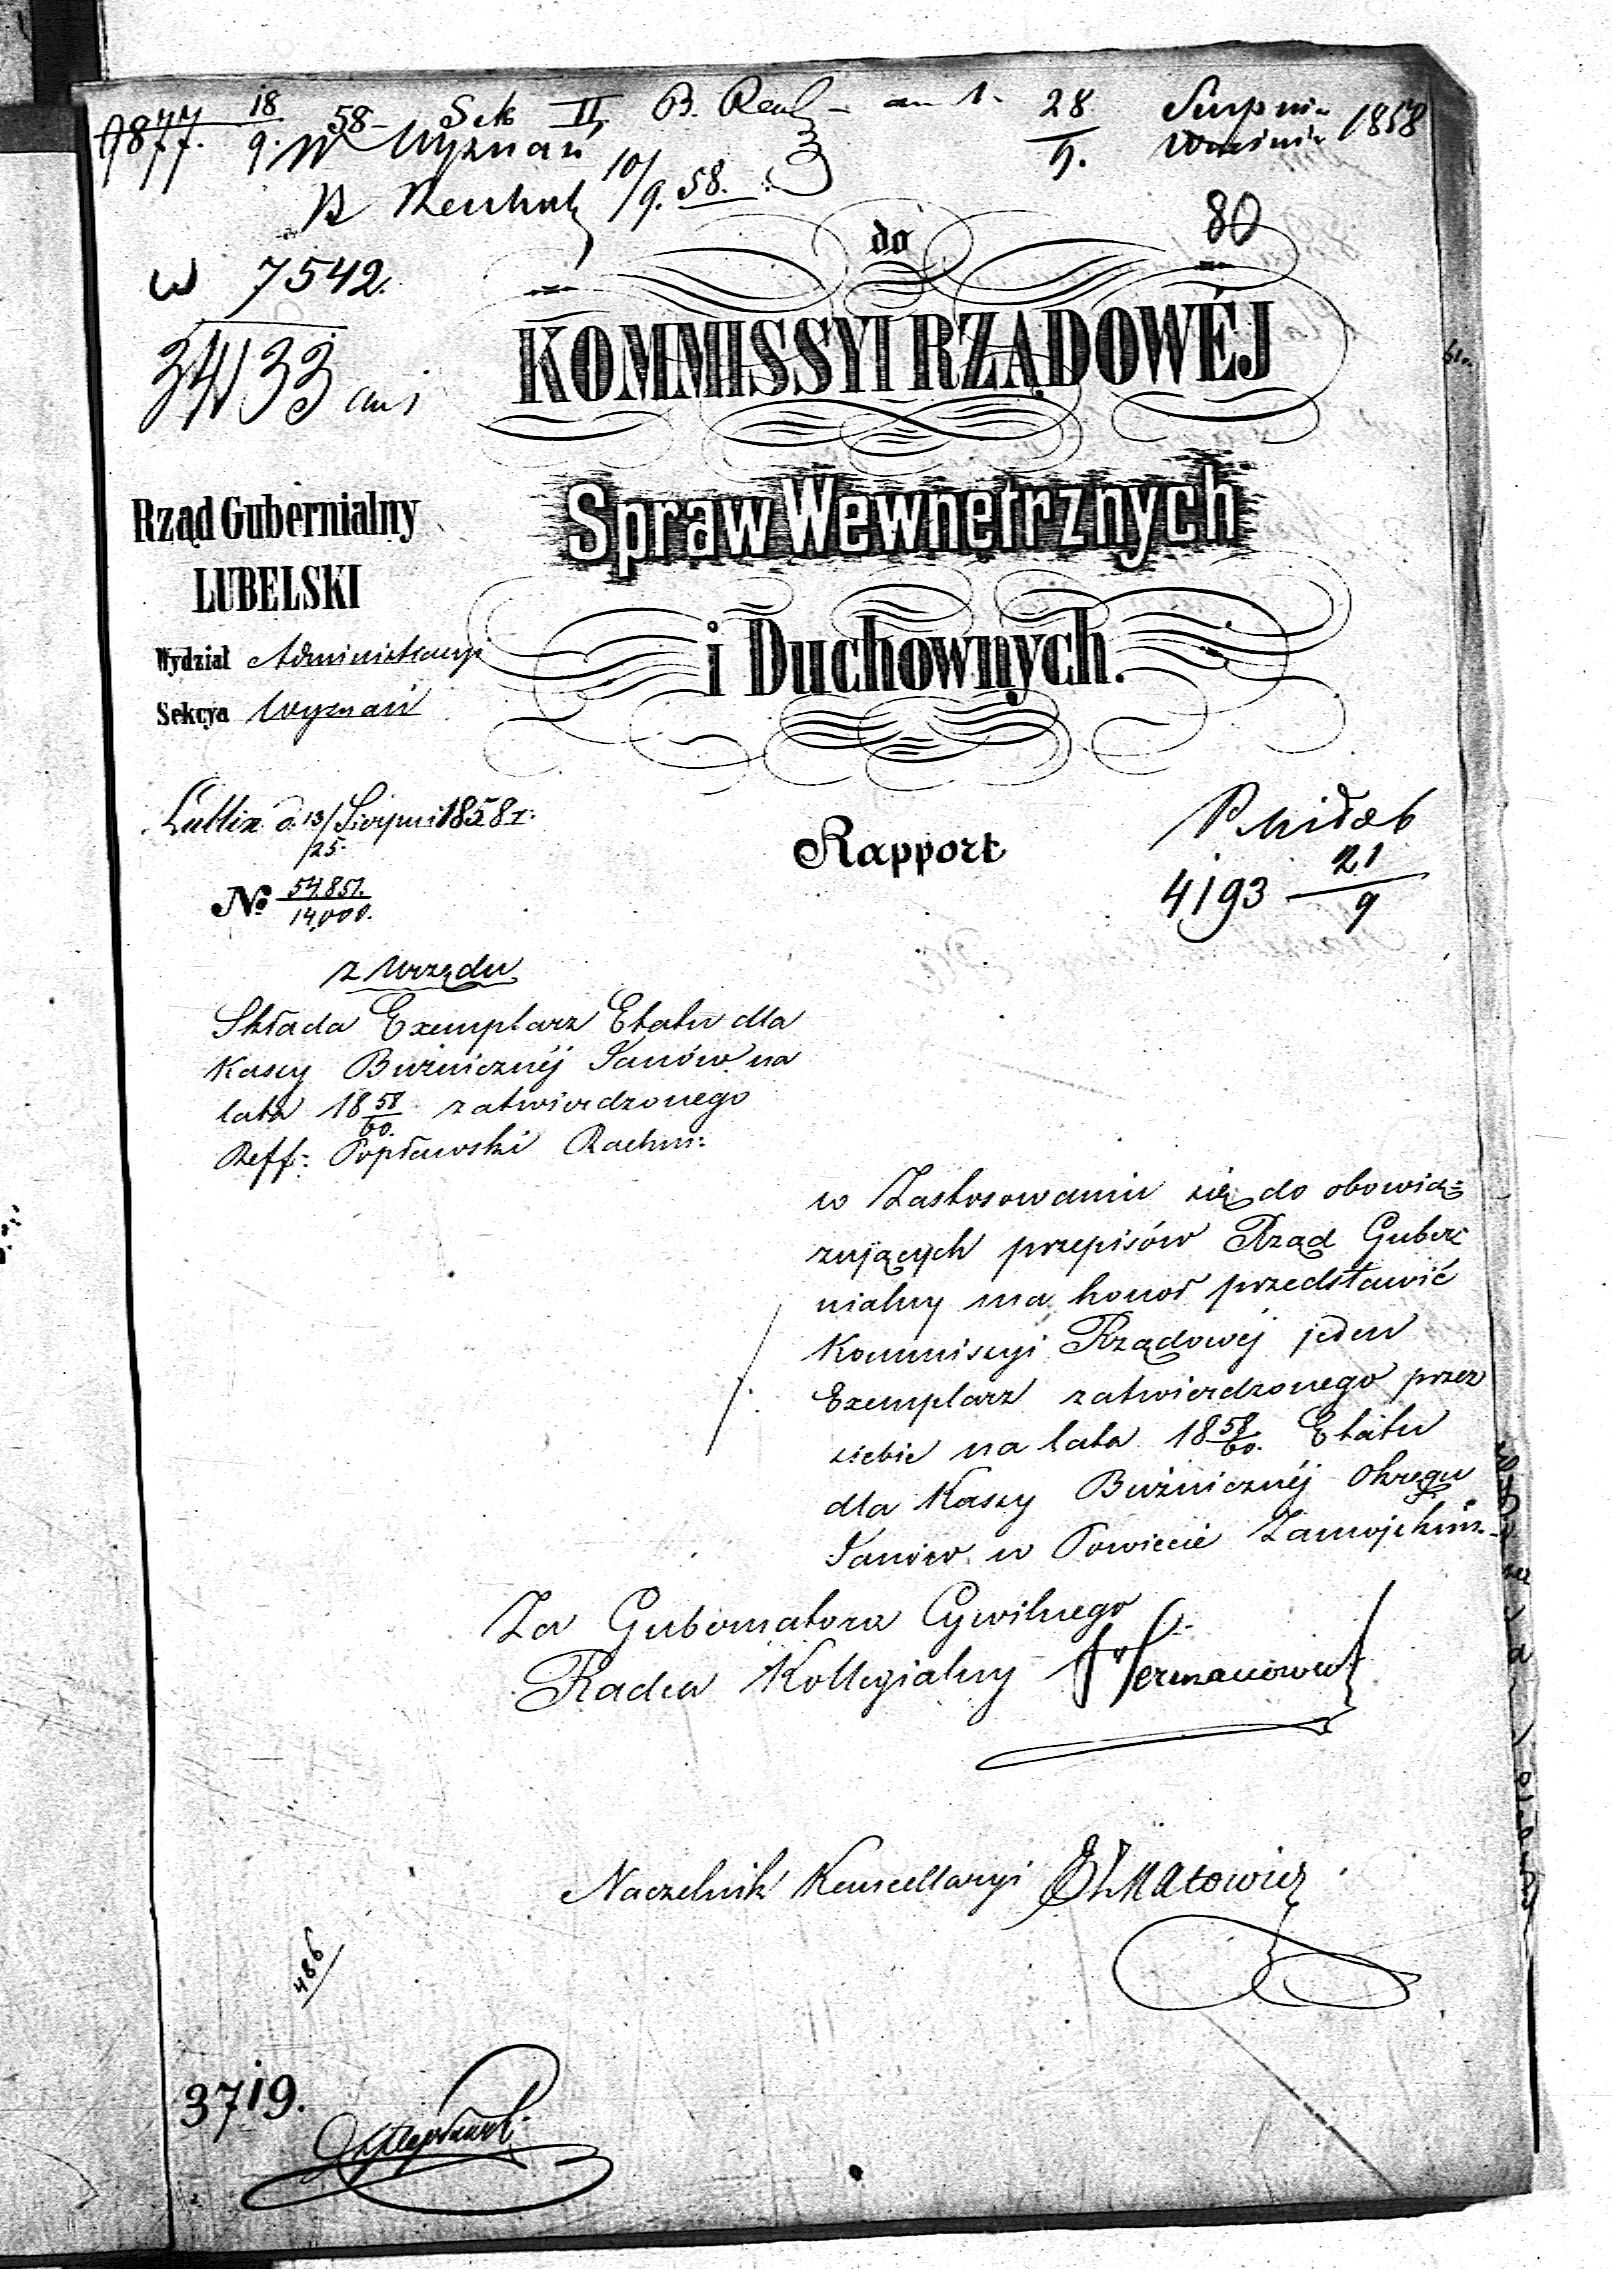 9877. 18/9. 58 Sek II, B. Rach 28 Sierpni 1858
W Wyznań 9. Wrześni
10/9. 58.
80
W 7542.
34133
do
KOMMISSYI RZĄDOWÉJ
Spraw Wewnętrznych
i Duchownych.
Rząd Gubernialny
LUBELSKI
Wydział Administracyi
Sekcya Wyznań
Lublin d. 13/25 Sierpni 1858 r:
Rapport
4193 21/9
No 54.851./14,000.
z Urzędu
Składa Exemplarz Etatu dla
Kassy Bużnicznéj Janów na
lata 18 58/60. zatwierdzonego
Reff: Popławski Rachm:
w Zastosowaniu się do obowią=
zujących przepisów Rząd Guber=
nialny ma honor przedstawić
Kommissyi Rządowéj jeden
Exemplarz zatwierdzonego przez
siebie na lata 18 58/60. Etatu
dla Kassy Bużnicznéj Okręgu
Janów w Powiecie Zamojskim
Za Gubernatora Cywilnego
Radca Kollegialny
Naczelnik Kancellaryi
486
3719.